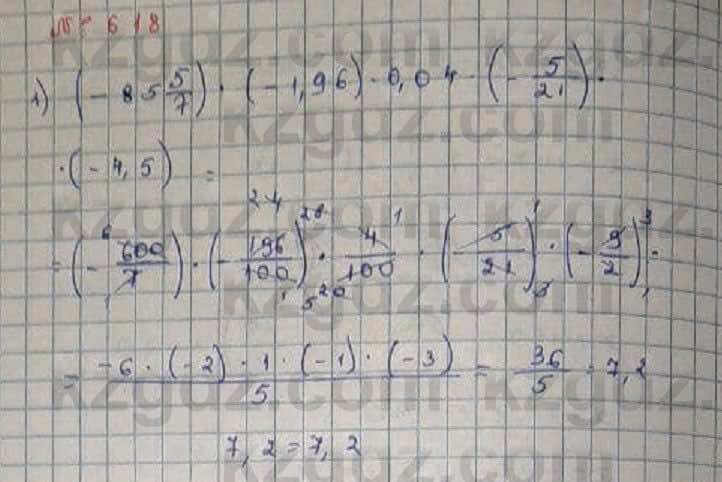 № 618
1) (- 85 5/7) · (- 1,96) · 0,04 · (- 5/21) ·
· (- 4,5) =
= (- 600/7) · (- 196/100) · 4/100 · (- 5/21) · (- 9/2) =
= -6 · (-2) · 1 · (-1) · (-3) / 5 = 36/5 = 7,2
7,2 = 7,2
kzgdz.com